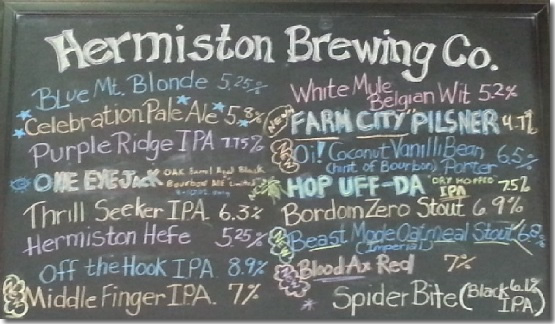 Hermiston Brewing Co.
BLue Mt. Blonde 5.25%
Celebration Pale Ale 5.8%
Purple Ridge IPA 7.75%
ONE EYE JacK OAK Barrel Aged Black
Bourbon
Thrill Seeker IPA 6.3%
Hermiston Hefe 5.25%
Off the Hook IPA 8.9%
Middle Finger IPA. 7%
White Mule
Belgian Wit 5.2%
NEW
FARM CITY PILSNER 4.7%
Oi! Coconut Vanilli Bean
(hint of Bourbon) Porter 6.5%
HOP UFF-DA DRY HOPPED
IPA 7.5%
Bordom Zero Stout 6.9%
Beast Mode Oatmeal Stout
(Imperial)
Blood Ax Red 7%
Spider Bite (Black
IPA)